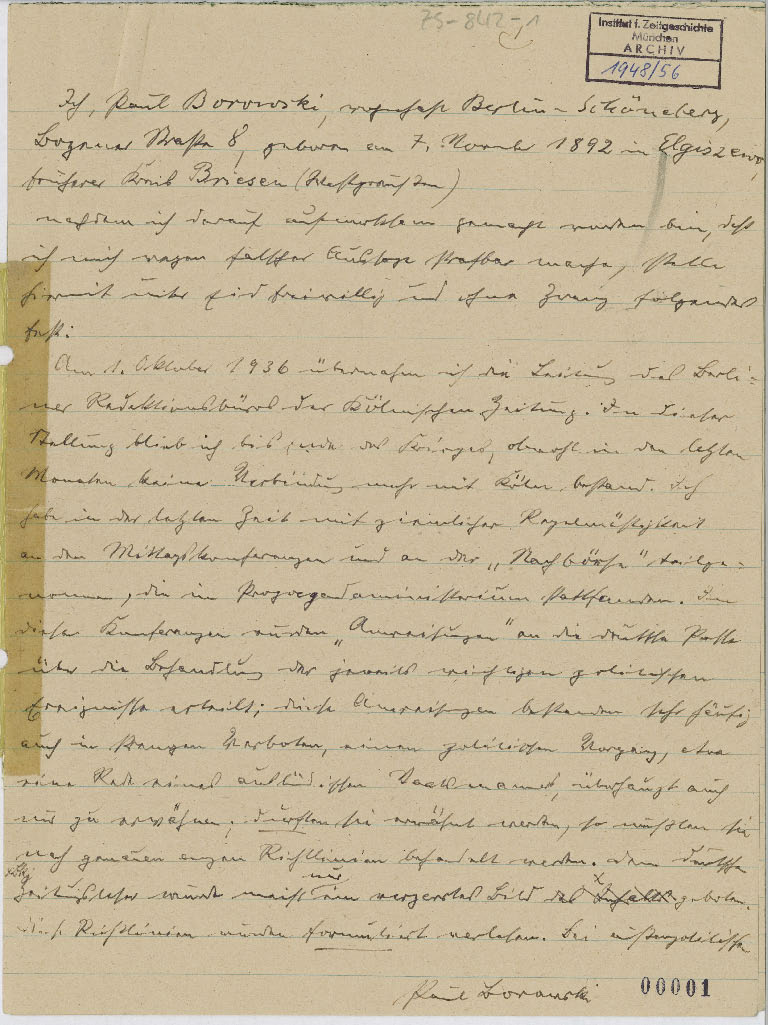 ZS-842-1
Institut f. Zeitgeschichte
München
ARCHIV
1948/56
Ich, Paul Borowski, wohnhaft Berlin-Schöneberg,
Bozener Straße 8, geboren am 7. November 1892 in Elgiszewo,
früherer Kreis Briesen (Westpreußen)
nachdem ich darauf aufmerksam gemacht worden bin, daß
ich mich wegen falscher Aussage strafbar mache, stelle
hiermit unter Eid freiwillig und ohne Zwang folgendes
fest:
Am 1. Oktober 1936 übernahm ich die Leitung des Berli-
ner Redaktionsbüros der Kölnischen Zeitung. In dieser
Stellung blieb ich bis Ende des Krieges, obwohl in den letzten
Monaten keine Verbindung mehr mit Köln bestand. Ich
habe in der letzten Zeit mit ziemlicher Regelmäßigkeit
an den Mittagskonferenzen und an der „Nachbörse" teilge-
nommen, die im Propagandaministerium stattfanden. In
diesen Konferenzen wurden „Anweisungen" an die deutsche Presse
über die Behandlung der jeweils wichtigen politischen
Ereignisse erteilt; diese Anweisungen bestanden sehr häufig
auch in strengen Verboten, einen politischen Vorgang, etwa
eine Rede eines ausländischen Staatsmannes, überhaupt auch
nur zu erwähnen; durften sie erwähnt werden, so mußten sie
nach genauen engen Richtlinien behandelt werden. Dem deutschen
Zeitungsleser wurde meist nur ein verzerrtes Bild des Inhalts geboten.
Diese Richtlinien wurden formuliert verlesen. Bei außenpolitischen
Paul Borowski
00001